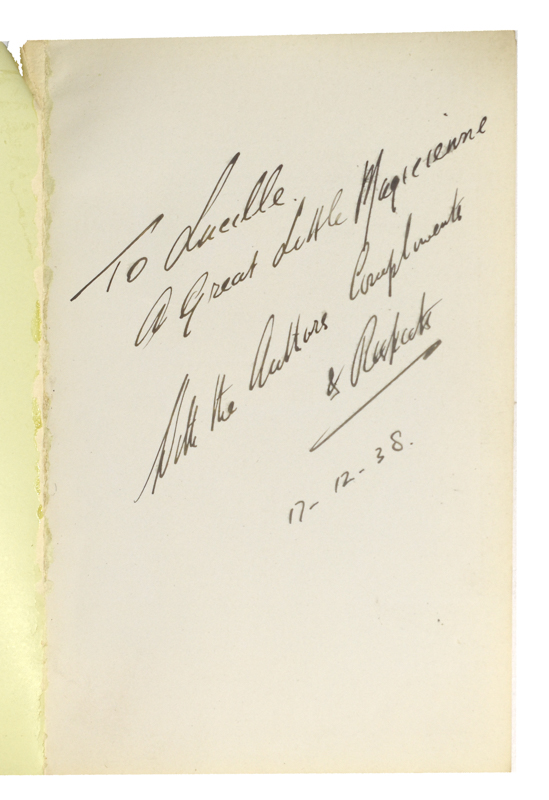 To Lucille.
A Great Little Magicienne
With the Authors Compliments
& Respects
17-12-38.